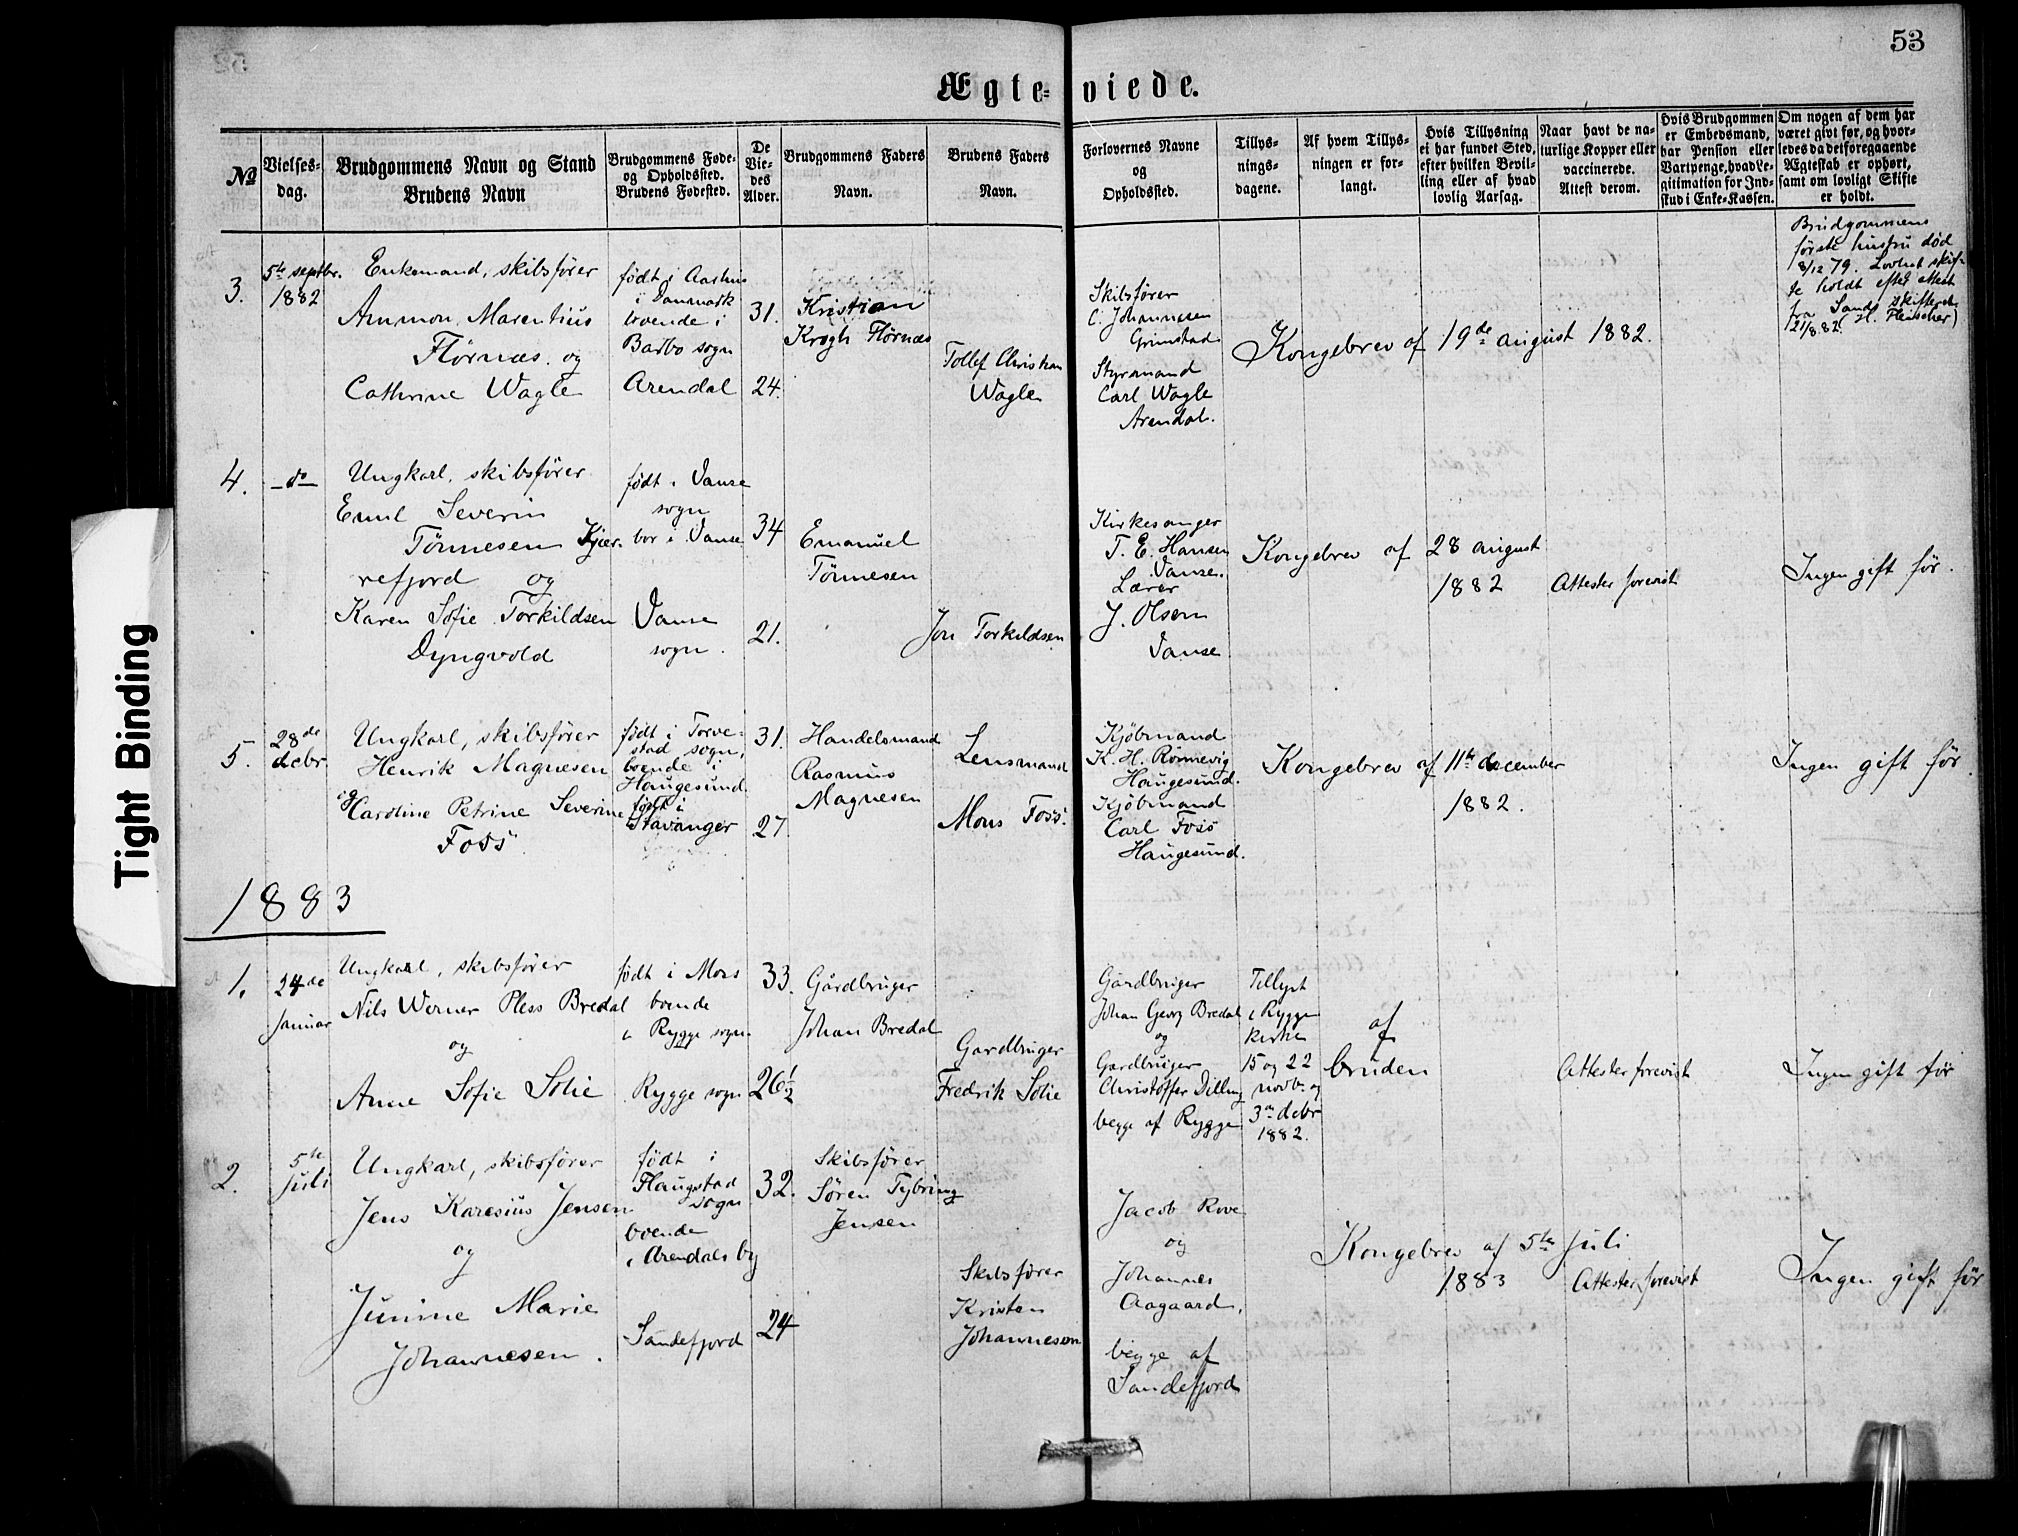 53
Ægte=viede.
№
Vielses-
dag.
Brudgommens Navn og Stand
Brudens Navn
Brudgommens Føde-
og Opholdssted.
Brudens Fødested.
De
Vie-
des
Alder.
Brudgommens Faders
Navn.
Brudens Faders
Navn.
Forlovernes Navne
og
Opholdssted.
Tillys-
nings-
dagene.
Af hvem Tillys-
ningen er for-
langt.
Hvis Tillysning
ei har fundet Sted,
efter hvilken Bevil-
ling eller af hvad
lovlig Aarsag.
Naar havt de na-
turlige Kopper eller
vaccinerede.
Attest derom.
Hvis Brudgommen
er Embedsmand,
har Pension eller
Vartpenge, hvad Le-
gitimation for Ind-
skud i Enke-Kassen.
Om nogen af dem har
været givt før, og hvor-
ledes da det foregaaende
Ægteskab er ophørt,
samt om lovligt Skifte
er holdt.
3.
5te septbr.
1882
Enkemand, skibsfører
Ammon Marentius
Flørnæs og
Cathrine Wagle
født i Aarhus
i Danmark
boende i
Barbo sogn
Arendal
31.
24.
Kristian
Krogh Flørnæs
Tollef Christian
Wagle
Skibsfører
C. Johannesen
Grimstad
Styrmand
Carl Wagle
Arendal.
Kongebrev af 19de august 1882.
Brudgommens
første hustru død
8/12 79. Lovligt skif-
te holdt efter attest
fra Sands skifteret
21/8.82. (H. Fleischer)
4.
-do-
Ungkarl, skibsfører
Emil Severin
Tönnesen Kjær-
refjord og
Karen Sofie Torkildsen
Dyngvold
født i Vanse
sogn
bor i Vanse
Vanse
sogn.
34
21.
Emanuel
Tönnesen
Jon Torkildsen
Kirkesanger
T. E. Hansen
Vanse.
Lærer
J. Olsen
Vanse
Kongebrev af 28 august
1882
Attester forevist
Ingen gift før.
5.
28de
debr.
Ungkarl, skibsfører
Henrik Magnesen
og Caroline Petrine Severine
Foss
født i Torve-
stad sogn,
boende i
Haugesund.
født i
Stavanger
31.
27
Handelsmand
Rasmus
Magnesen
Lensmand
Mons Foss.
Kjöbmand
K. H. Rønnevig
Haugesund.
Kjöbmand
Carl Foss
Haugesund.
Kongebrev af 11te december
1882.
Ingen gift før.
1883
1.
24de
Januar
Ungkarl, skibsfører
Nils Werner Pless Bredal
og
Anne Sofie Solie
født i Moss
boende
i Rygge sogn.
Rygge sogn
33.
26½
Gårdbruger
Johan Bredal
Gardbruger
Fredrik Solie
Gårdbruger
Johan Georg Bredal
og
Gardbruger
Christoffer Dilling
begge af Rygge
Tillyst
i Rygge
kirke
15 og 22
novbr. og
3die debr
1882.
af
bruden
Attester forevist
Ingen gift før
2.
5te
Juli
Ungkarl, skibsfører
Jens Karesius Jensen
og
Junine Marie
Johannesen.
født i
Flaugstad
sogn
boende
i Arendals by
Sandefjord
32.
24
Skibsfører
Søren Tybring
Jensen
Skibsfører
Kristen
Johannesen
Jacob Rove
og
Johannes
Aagaard,
begge af
Sandefjord
Kongebrev af 5te Juli
1883
Attester forevist
Ingen gift før
Tight Binding